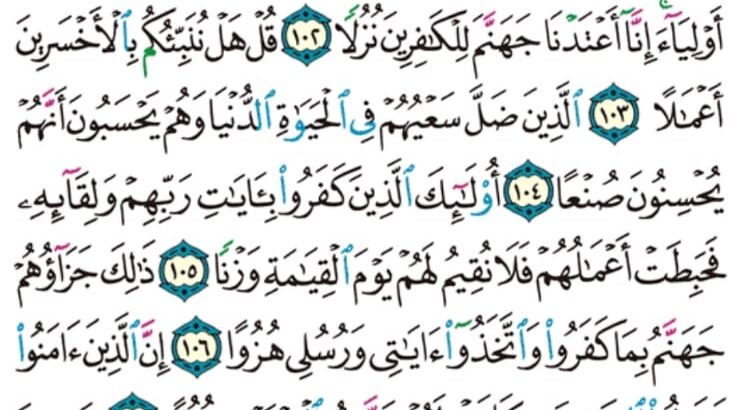 أَوْلِيَآءَ إِنَّآ أَعْتَدْنَا جَهَنَّمَ لِلْكَٰفِرِينَ نُزُلًا ١٠٢ قُلْ هَلْ نُنَبِّئُكُم بِٱلْأَخْسَرِينَ
أَعْمَٰلًا ١٠٣ ٱلَّذِينَ ضَلَّ سَعْيُهُمْ فِى ٱلْحَيَوٰةِ ٱلدُّنْيَا وَهُمْ يَحْسَبُونَ أَنَّهُمْ
يُحْسِنُونَ صُنْعًا ١٠٤ أُو۟لَٰٓئِكَ ٱلَّذِينَ كَفَرُوا۟ بِـَٔايَٰتِ رَبِّهِمْ وَلِقَآئِهِۦ
فَحَبِطَتْ أَعْمَٰلُهُمْ فَلَا نُقِيمُ لَهُمْ يَوْمَ ٱلْقِيَٰمَةِ وَزْنًا ١٠٥ ذَٰلِكَ جَزَآؤُهُمْ
جَهَنَّمُ بِمَا كَفَرُوا۟ وَٱتَّخَذُوٓا۟ ءَايَٰتِى وَرُسُلِى هُزُوًا ١٠٦ إِنَّ ٱلَّذِينَ ءَامَنُوا۟